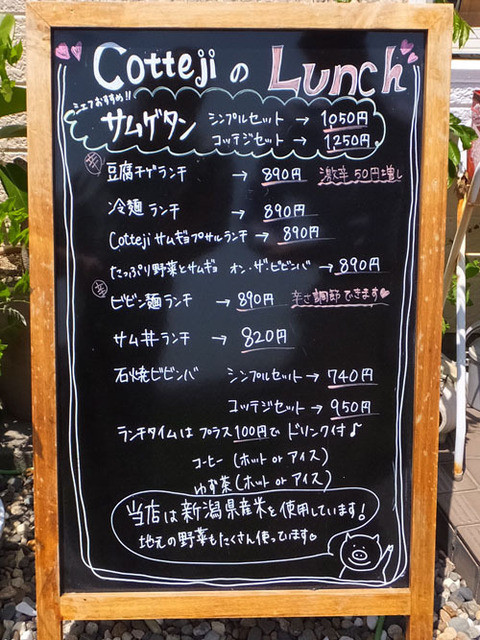 Cottejiの Lunch
シェフおすすめ!!
サムゲタン シンプルセット → 1050円
コッテジセット → 1250円
辛 豆腐チゲランチ → 890円 激辛50円増し
冷麺ランチ → 890円
Cotteji サムギョプサルランチ → 890円
たっぷり野菜とサムギョ オン・ザ・ビビンバ → 890円
辛 ビビン麺ランチ → 890円 辛さ調節できます♥
サム丼ランチ → 820円
石焼ビビンバ シンプルセット → 740円
コッテジセット → 950円
ランチタイムは プラス100円で ドリンク付♪
コーヒー (ホット or アイス)
ゆず茶 (ホット or アイス)
当店は新潟県産米を使用しています!
地元の野菜もたくさん使っています♡